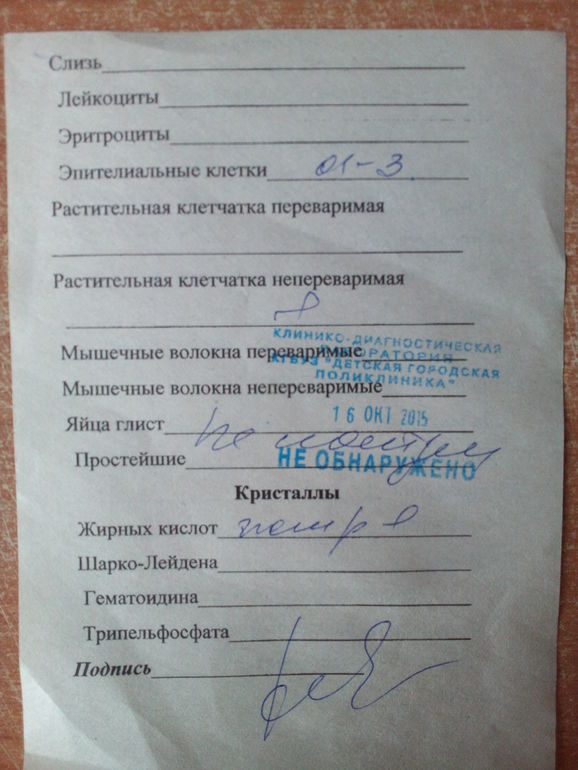 Слизь
Лейкоциты
Эритроциты
Эпителиальные клетки 01-3
Растительная клетчатка переваримая
Растительная клетчатка непереваримая
КЛИНИКО-ДИАГНОСТИЧЕСКАЯ
Мышечные волокна переваримые ЛАБОРАТОРИЯ
КГБУЗ "ДЕТСКАЯ ГОРОДСКАЯ
ПОЛИКЛИНИКА"
Мышечные волокна непереваримые
16 ОКТ 2015
Яйца глист не
Простейшие НЕ ОБНАРУЖЕНО
Кристаллы
Жирных кислот
Шарко-Лейдена
Гематоидина
Трипельфосфата
Подпись